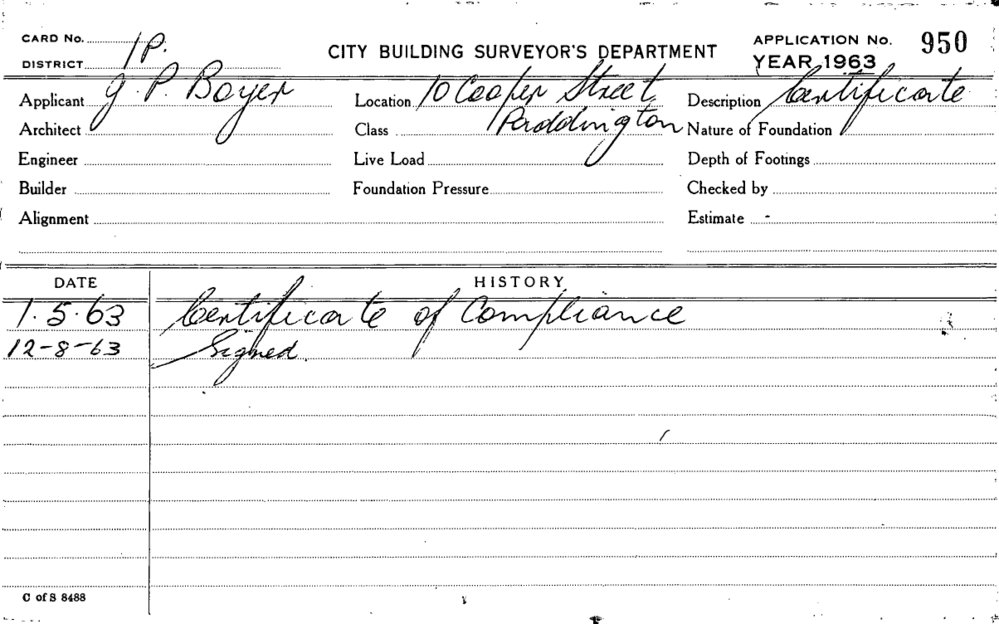 CARD No. 1P.
DISTRICT
CITY BUILDING SURVEYOR'S DEPARTMENT
APPLICATION No. 950
YEAR 1963
Applicant J. P Boyer
Location 10 Cooper Street
Paddington
Description Certificate
Architect
Class
Nature of Foundation
Engineer
Live Load
Depth of Footings
Builder
Foundation Pressure
Checked by
Alignment
Estimate -
DATE HISTORY
1.5.63 Certificate of Compliance
12-8-63 Signed.
C of S 8488